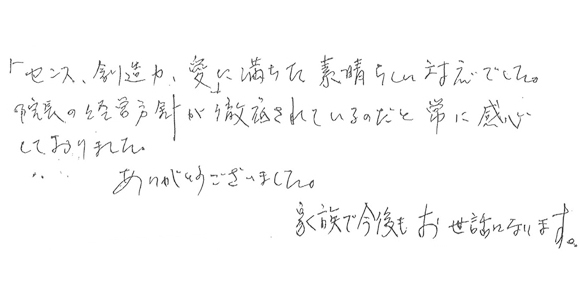 「センス、創造力、愛に満ちた素晴らしい対応でした。
院長の経営方針が徹底されているのだと常に感心
しておりました。
ありがとうございました。
家族で今後もお世話になります。